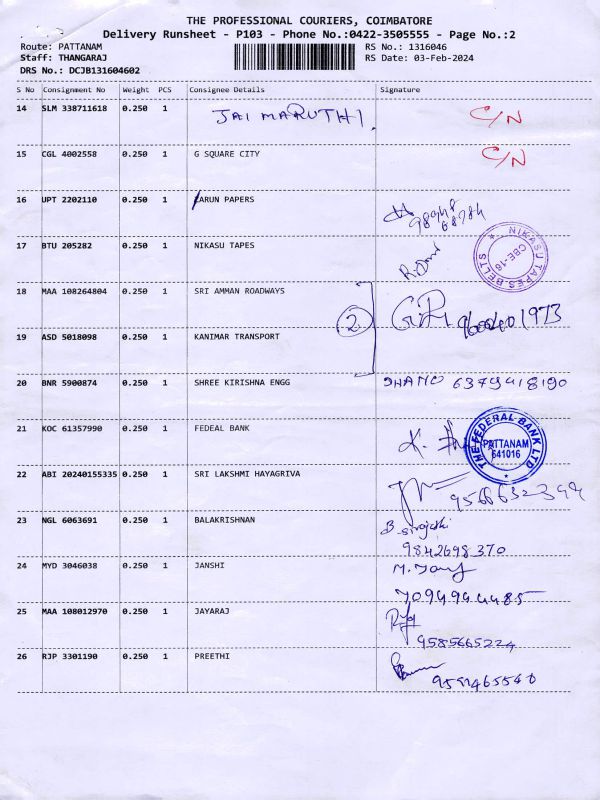 THE PROFESSIONAL COURIERS, COIMBATORE
Delivery Runsheet - P103 - Phone No.:0422-3505555 - Page No.:2
Route: PATTANAM
RS No.: 1316046
Staff: THANGARAJ
RS Date: 03-Feb-2024
DRS No.: DCJB131604602
S No Consignment No Weight PCS Consignee Details Signature
14 SLM 338711618 0.250 1 JAI MARUTHI. C/N
15 CGL 4002558 0.250 1 G SQUARE CITY C/N
16 UPT 2202110 0.250 1 ARUN PAPERS
17 BTU 205282 0.250 1 NIKASU TAPES
NIKASU TAPES BELTS CBE-16
18 MAA 108264804 0.250 1 SRI AMMAN ROADWAYS
2
19 ASD 5018098 0.250 1 KANIMAR TRANSPORT
20 BNR 5900874 0.250 1 SHREE KIRISHNA ENGG 6379418190
21 KOC 61357990 0.250 1 FEDEAL BANK
THE FEDERAL BANK LTD
PATTANAM
641016
22 ABI 20240155335 0.250 1 SRI LAKSHMI HAYAGRIVA
23 NGL 6063691 0.250 1 BALAKRISHNAN
9842698370
24 MYD 3046038 0.250 1 JANSHI
7094944485
25 MAA 108012970 0.250 1 JAYARAJ
9585665224
26 RJP 3301190 0.250 1 PREETHI